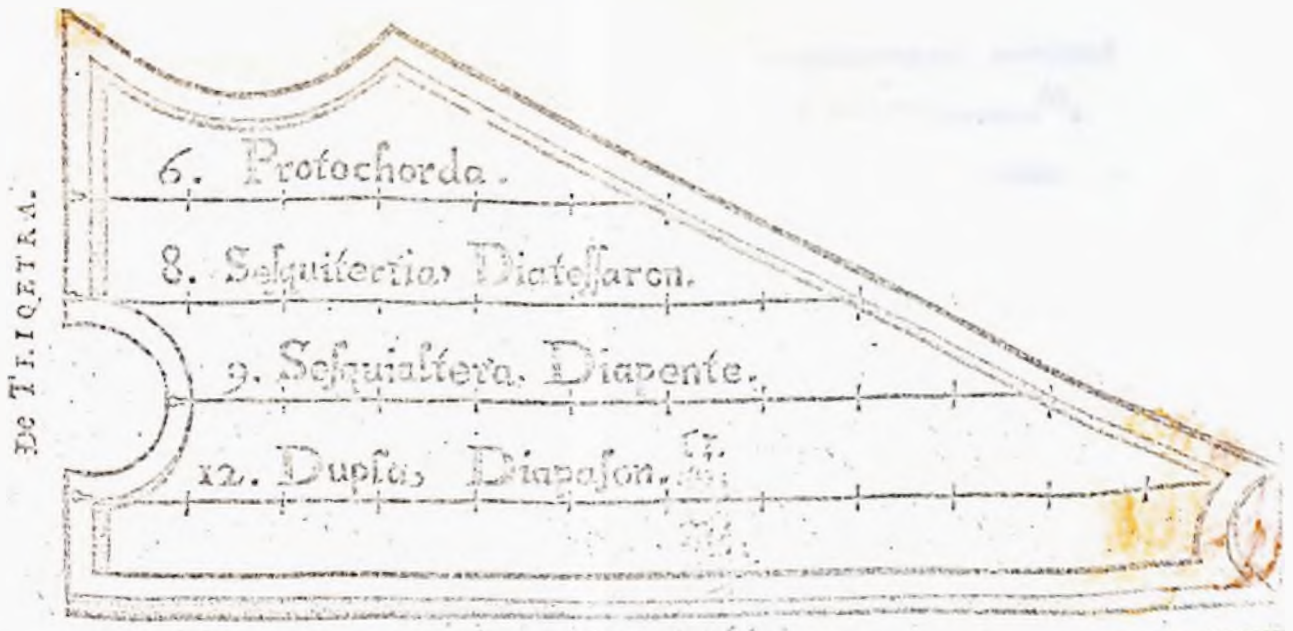 DE TRIQETRA.
6. Protochorda.
8. Seſquitertia, Diateſſaron.
9. Seſquialtera. Diapente.
12. Dupla, Diapaſon.